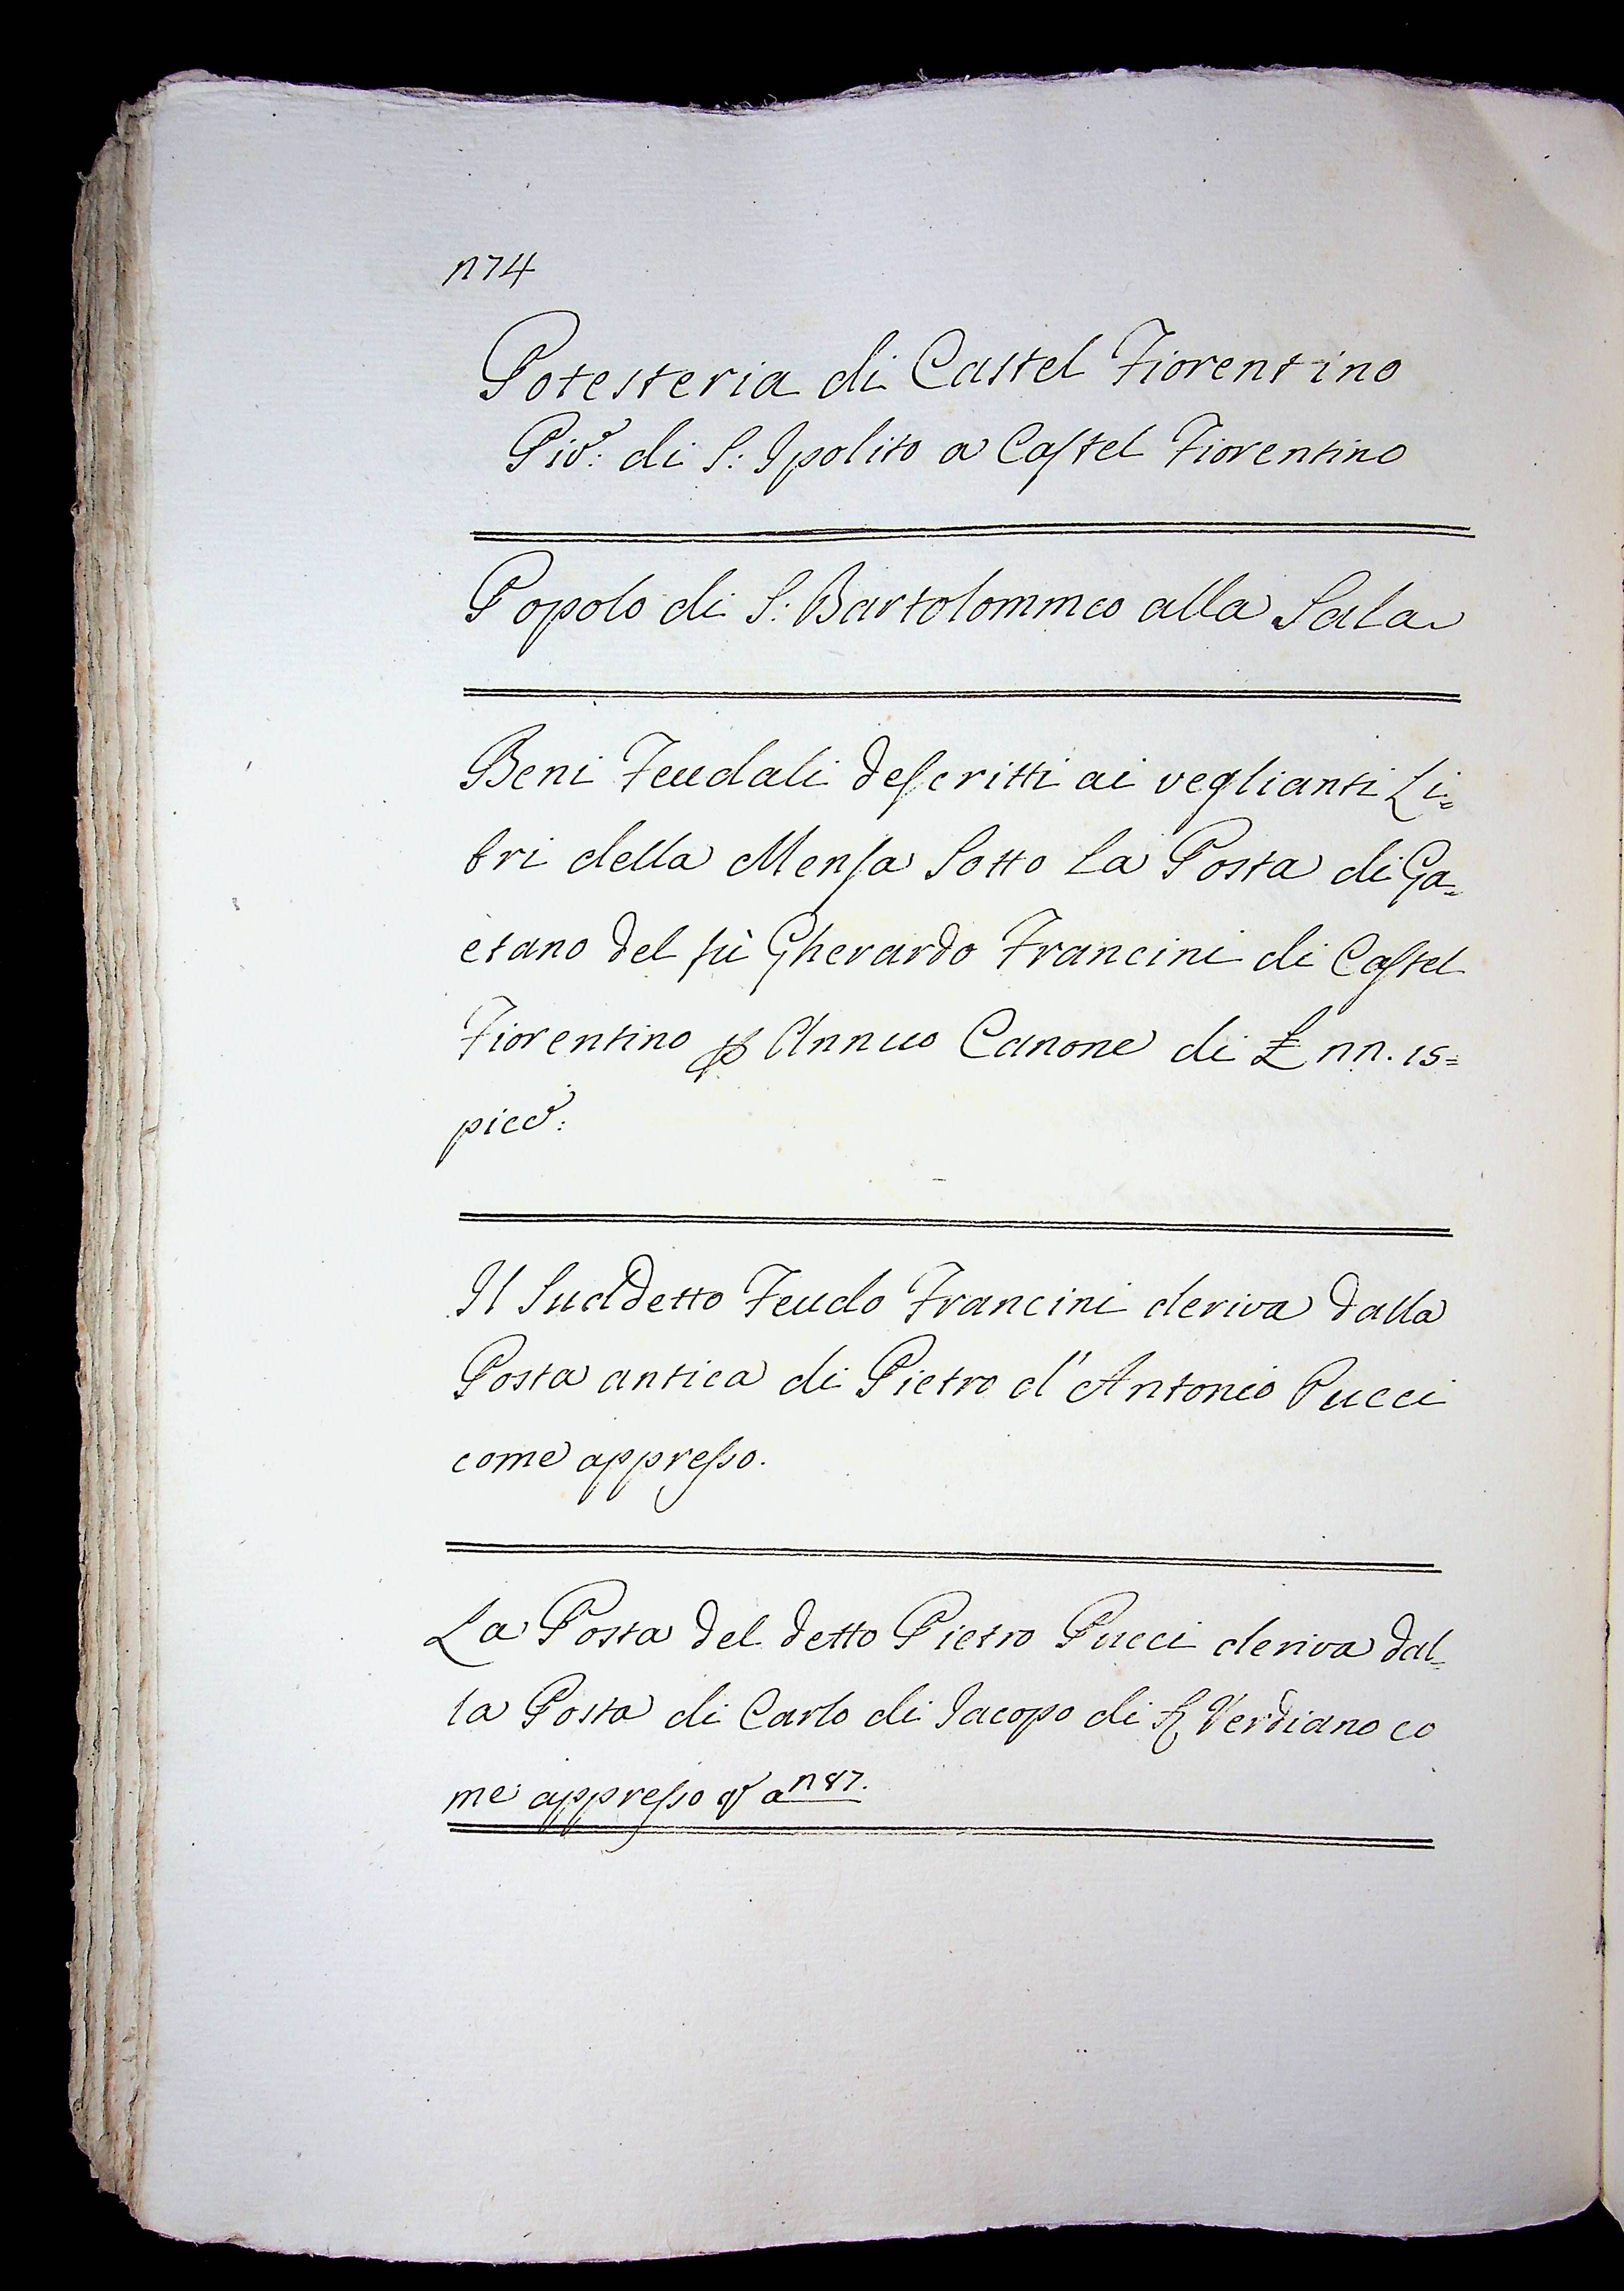 n74
Potesteria di Castel Fiorentino
Piv.e di S: Ipolito a Castel Fiorentino
Popolo di S: Bartolommeo alla Sala
Beni Feudali descritti ai veglianti Li=
bri della Mensa Sotto la Posta di Ga=
etano del fù Gherardo Francini di Castel
Fiorentino p Annuo Canone di £ nn. 15=
picc:
Il Suddetto Feudo Francini deriva dalla
Posta antica di Pietro d'Antonio Pucci
come appresso.
La Posta del detto Pietro Pucci deriva dal=
la Posta di Carlo di Jacopo di Verdiano co
me appresso a n87.